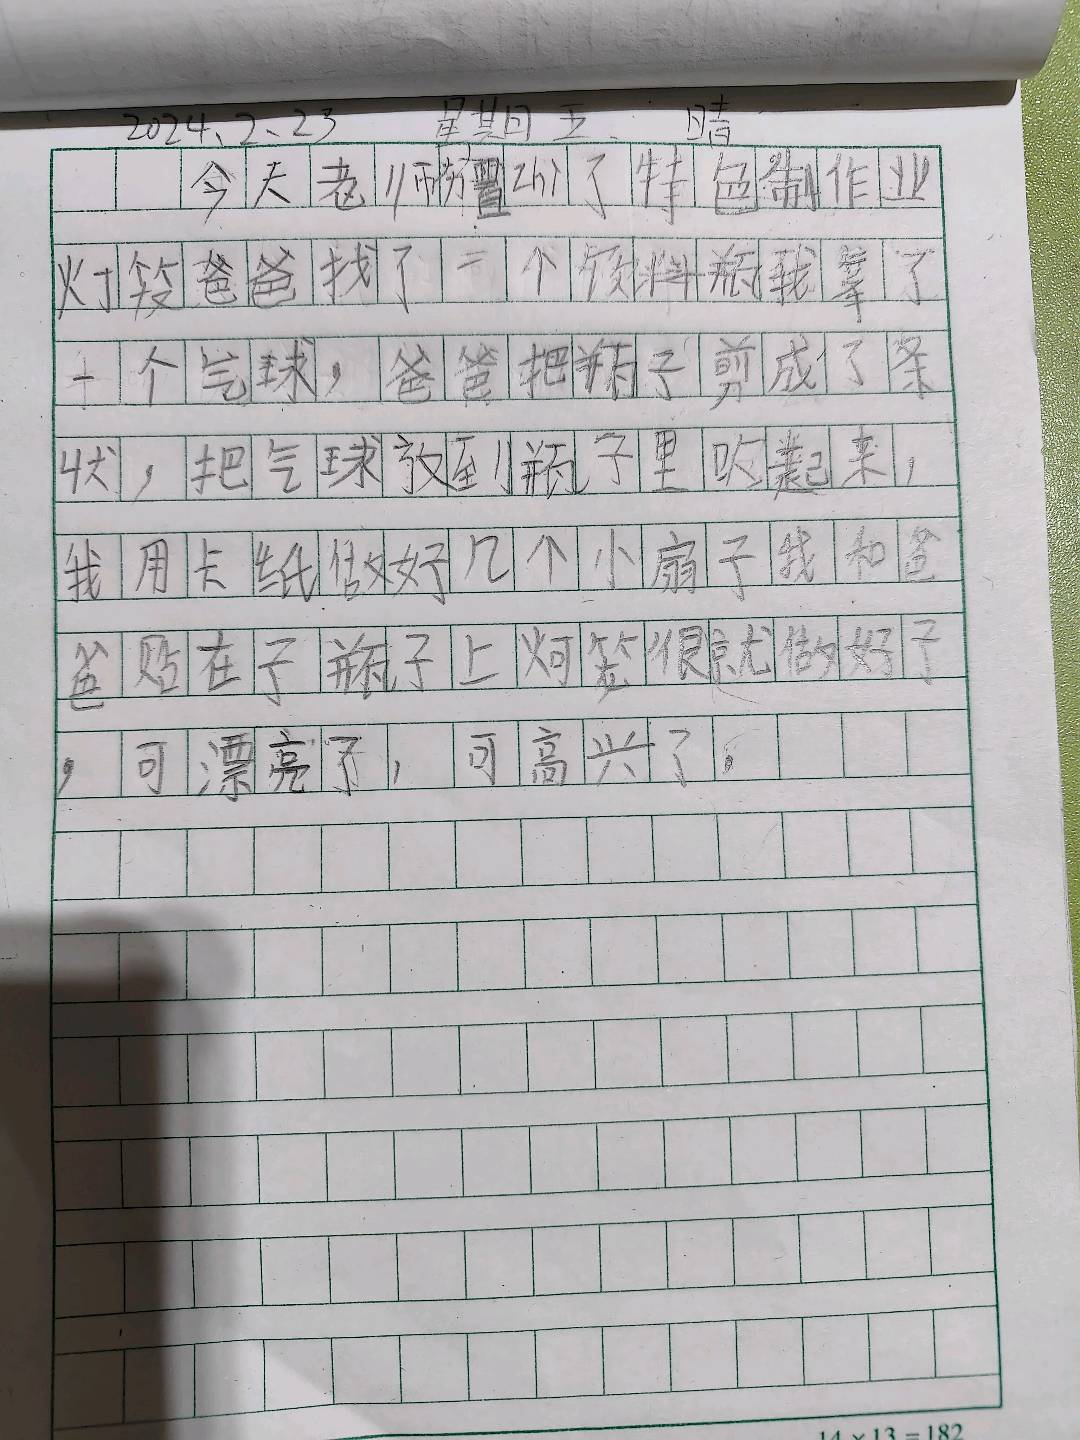 2024、2、23 星期五 晴
今天老师置zhi了特色制作业
灯爸爸找了二个饮料瓶我拿了
一个气球，爸爸把瓶子剪成了条
状，把气球放到瓶子里吹起来，
我用卡纸做好几个小扇子我和爸
爸贴在子瓶子上很就做好子
，可漂亮了，可高兴了。
14×13=182